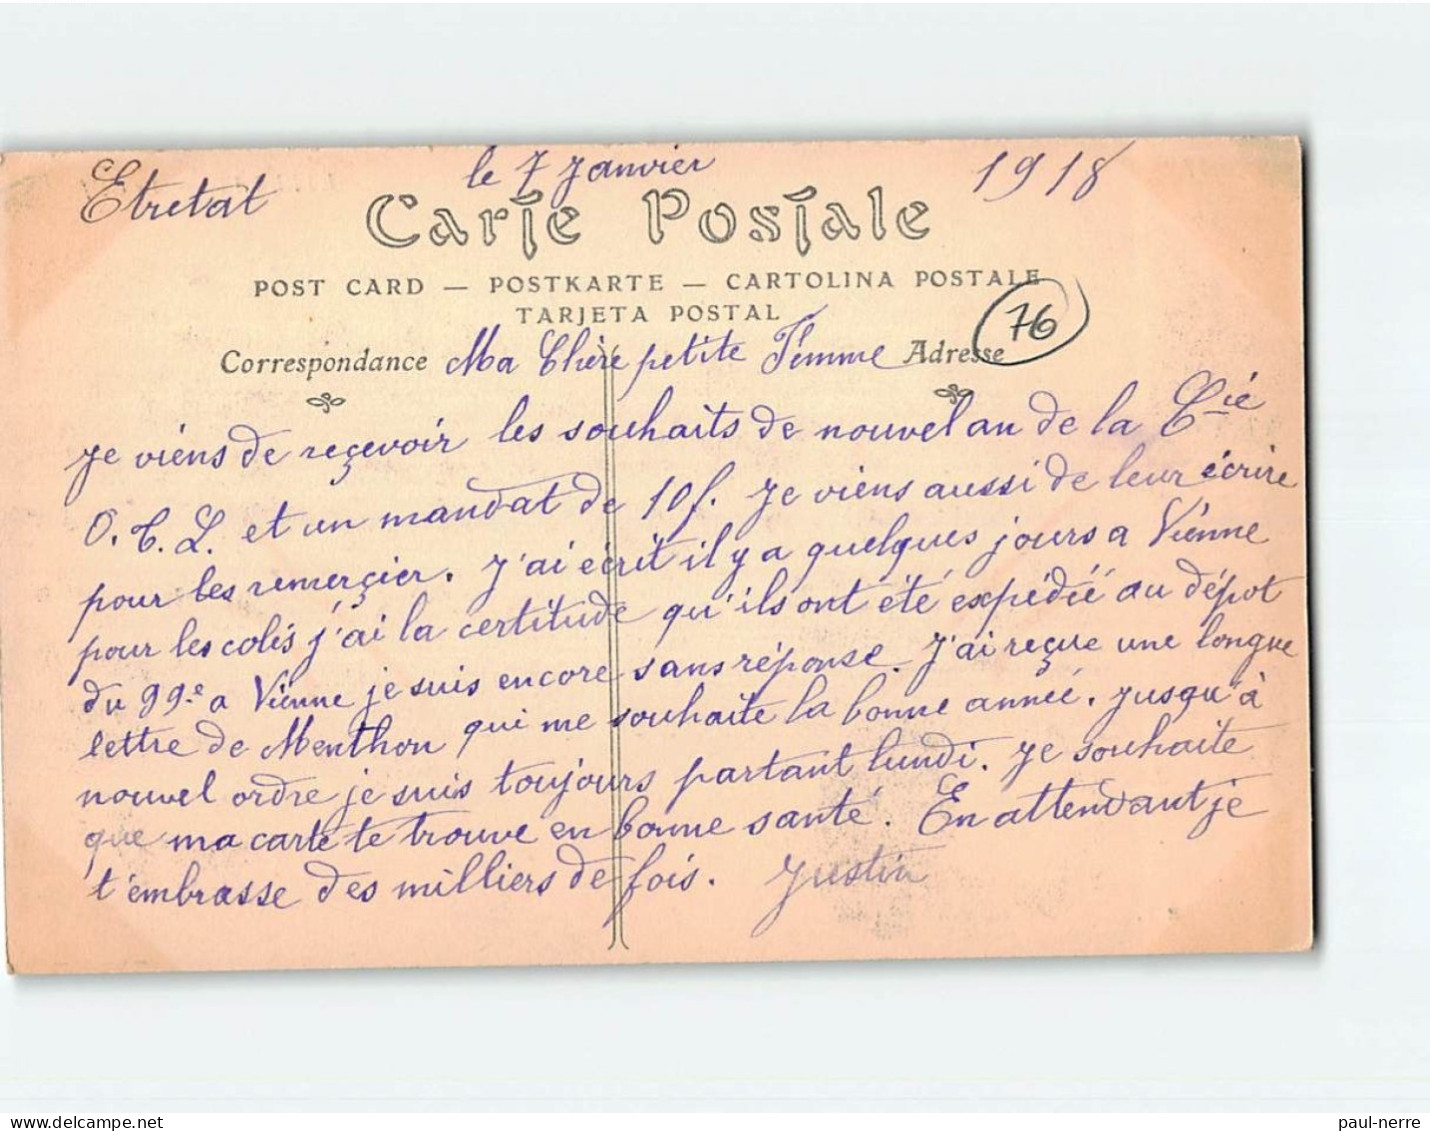 Etretat le 7 Janvier 1918
Carte Postale
POST CARD — POSTKARTE — CARTOLINA POSTALE
TARJETA POSTAL
76
Correspondance Ma Chère petite Femme Adresse
Je viens de reçevoir les souhaits de nouvel an de la Cié
O. T. L. et un mandat de 10f. Je viens aussi de leur écrire
pour les remerçier. J'ai écrit il y a quelques jours a Vienne
pour les colis j'ai la certitude qu'ils ont été expédié au dépot
du 99e a Vienne je suis encore sans réponse. J'ai reçue une longue
lettre de Menthon qui me souhaite la bonne année. Jusqu'à
nouvel ordre je suis toujours partant lundi. Je souhaite
que ma carte te trouve en bonne santé. En attendant je
t'embrasse des milliers de fois. Justin
paul-nerre